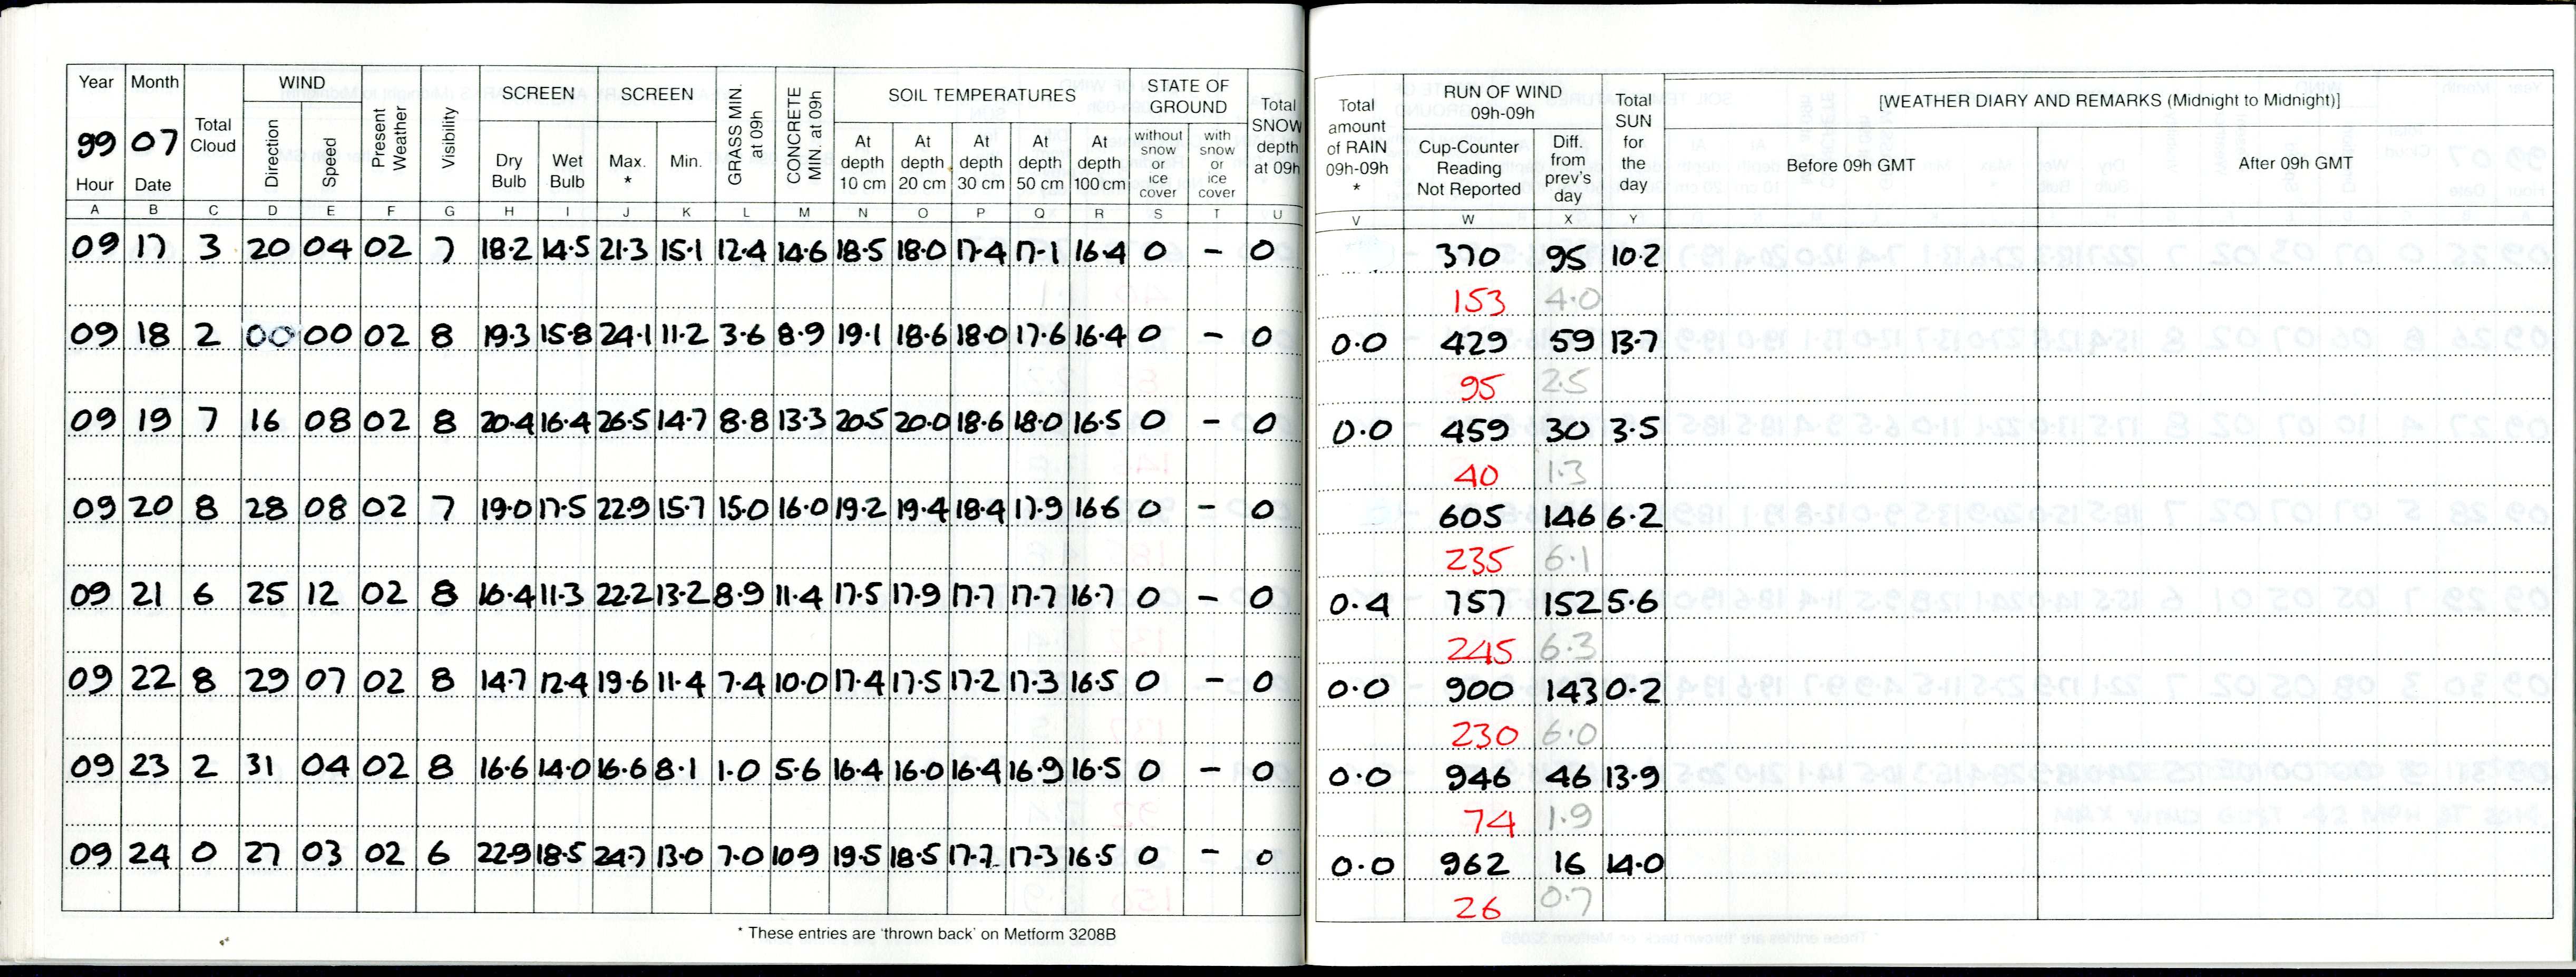 Year Month Total Cloud WIND Present Weather Visibility SCREEN SCREEN GRASS MIN. at 09h CONCRETE MIN. at 09h SOIL TEMPERATURES STATE OF GROUND Total SNOW depth at 09h Total amount of RAIN 09h-09h * RUN OF WIND 09h-09h Total SUN for the day [WEATHER DIARY AND REMARKS (Midnight to Midnight)]
99 07 Direction Speed Dry Bulb Wet Bulb Max. * Min. At depth 10 cm At depth 20 cm At depth 30 cm At depth 50 cm At depth 100 cm without snow or ice cover with snow or ice cover Cup-Counter Reading Not Reported Diff. from prev's day Before 09h GMT After 09h GMT
Hour Date
A B C D E F G H I J K L M N O P Q R S T U V W X Y
09 17 3 20 04 02 7 18.2 14.5 21.3 15.1 12.4 14.6 18.5 18.0 17.4 17.1 16.4 0 - 0 370 95 10.2
153 4.0
09 18 2 00 00 02 8 19.3 15.8 24.1 11.2 3.6 8.9 19.1 18.6 18.0 17.6 16.4 0 - 0 0.0 429 59 13.7
95 2.5
09 19 7 16 08 02 8 20.4 16.4 26.5 14.7 8.8 13.3 20.5 20.0 18.6 18.0 16.5 0 - 0 0.0 459 30 3.5
40 1.3
09 20 8 28 08 02 7 19.0 17.5 22.9 15.7 15.0 16.0 19.2 19.4 18.4 17.9 16.6 0 - 0 605 146 6.2
235 6.1
09 21 6 25 12 02 8 16.4 11.3 22.2 13.2 8.9 11.4 17.5 17.9 17.7 17.7 16.7 0 - 0 0.4 757 152 5.6
245 6.3
09 22 8 29 07 02 8 14.7 12.4 19.6 11.4 7.4 10.0 17.4 17.5 17.2 17.3 16.5 0 - 0 0.0 900 143 0.2
230 6.0
09 23 2 31 04 02 8 16.6 14.0 16.6 8.1 1.0 5.6 16.4 16.0 16.4 16.9 16.5 0 - 0 0.0 946 46 13.9
74 1.9
09 24 0 27 03 02 6 22.9 18.5 24.7 13.0 7.0 10.9 19.5 18.5 17.7 17.3 16.5 0 - 0 0.0 962 16 14.0
26 0.7
* These entries are 'thrown back' on Metform 3208B